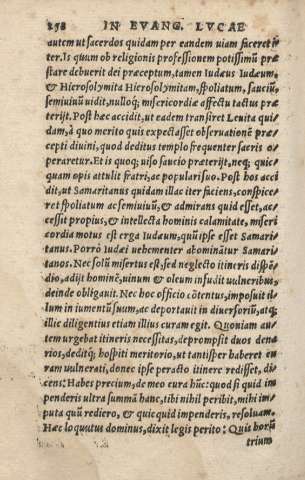 258 IN EVANG. LVCAE
autem ut sacerdos quidam per eandem uiam faceret i-
ter. Is quum ob religionis professionem potissimũ præ
stare debuerit dei præceptum, tamen Iudæus Iudæum,
& Hierosolymita Hierosolymitam, spoliatum, sauciũ,
semiuiuũ uidit, nulloq; misericordiæ affectu tactus præ
terijt. Post hæc accidit, ut eadem transiret Leuita qui-
dam, à quo merito quis expectasset obseruationẽ præ-
cepti diuini, quod deditus templo frequenter sacris o-
peraretur. Et is quoq; uiso saucio præterijt, neq; quic-
quam opis attulit fratri, ac populari suo. Post hos acci
dit, ut Samaritanus quidam illac iter faciens, conspice-
ret spoliatum ac semiuiuũ, & admirans quid esset, ac-
cessit propius, & intellecta hominis calamitate, miseri
cordia motus est erga Iudæum, quũ ipse esset Samari-
tanus. Porrò Iudæi uehementer abominãtur Samari-
tanos. Nec solũ misertus est, sed neglecto itineris dispẽ-
dio, adijt hominẽ, uinum & oleum infudit uulneribus,
deinde obligauit. Nec hoc officio cõtentus, imposuit il-
lum in iumentũ suum, ac deportauit in diuersoriũ, atq;
illic diligentius etiam illius curam egit. Quoniam au-
tem urgebat itineris necessitas, deprompsit duos dena-
rios, deditq; hospiti meritorio, ut tantisper haberet cu
ram uulnerati, donec ipse peracto itinere redisset, di-
cens: Habes precium, de meo cura hũc: quod si quid im
penderis ultra summã hanc, tibi nihil peribit, mihi im-
puta quũ rediero, & quicquid impenderis, resoluam.
Hæc loquutus dominus, dixit legis perito: Quis horũ
trium